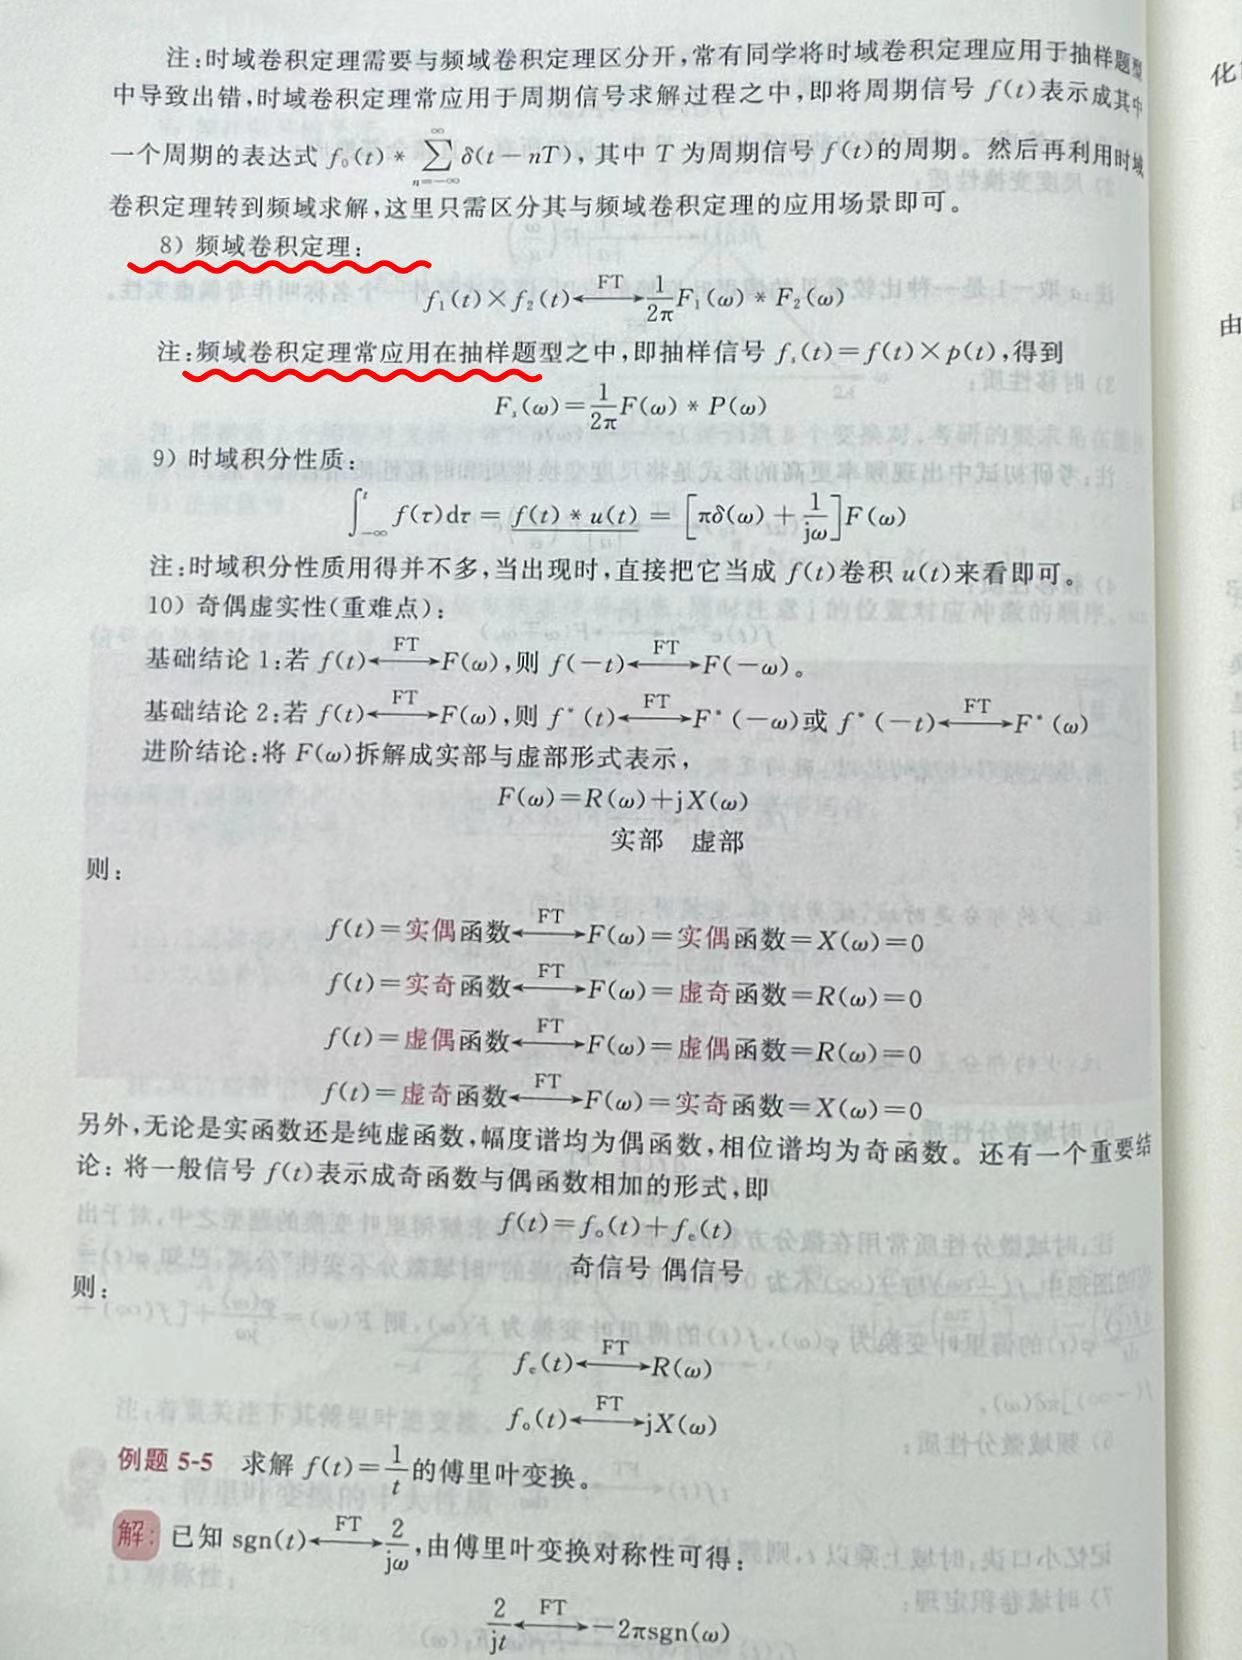 注:时域卷积定理需要与频域卷积定理区分开,常有同学将时域卷积定理应用于抽样题型
中导致出错,时域卷积定理常应用于周期信号求解过程之中,即将周期信号 f(t)表示成其中
一个周期的表达式 f₀(t) * ∑_{n=-∞}^{∞} δ(t-nT), 其中 T 为周期信号 f(t)的周期。然后再利用时域
卷积定理转到频域求解,这里只需区分其与频域卷积定理的应用场景即可。
8) 频域卷积定理:
f₁(t)×f₂(t) ←FT→ 1/2π F₁(ω) * F₂(ω)
注:频域卷积定理常应用在抽样题型之中,即抽样信号 fₛ(t)=f(t)×p(t),得到
Fₛ(ω)=1/2π F(ω) * P(ω)
9) 时域积分性质:
∫_{-∞}^{t} f(τ)dτ = f(t) * u(t) = [πδ(ω) + 1/jω]F(ω)
注:时域积分性质用得并不多,当出现时,直接把它当成 f(t)卷积 u(t)来看即可。
10) 奇偶虚实性(重难点):
基础结论 1:若 f(t) ←FT→ F(ω),则 f(-t) ←FT→ F(-ω)。
基础结论 2:若 f(t) ←FT→ F(ω),则 f*(t) ←FT→ F*(-ω)或 f*(-t) ←FT→ F*(ω)
进阶结论:将 F(ω)拆解成实部与虚部形式表示,
F(ω)=R(ω)+jX(ω)
实部 虚部
则:
f(t)=实偶函数 ←FT→ F(ω)=实偶函数=X(ω)=0
f(t)=实奇函数 ←FT→ F(ω)=虚奇函数=R(ω)=0
f(t)=虚偶函数 ←FT→ F(ω)=虚偶函数=R(ω)=0
f(t)=虚奇函数 ←FT→ F(ω)=实奇函数=X(ω)=0
另外,无论是实函数还是纯虚函数,幅度谱均为偶函数,相位谱均为奇函数。还有一个重要结
论: 将一般信号 f(t)表示成奇函数与偶函数相加的形式,即
f(t)=fₒ(t)+fₑ(t)
奇信号 偶信号
则:
fₑ(t) ←FT→ R(ω)
fₒ(t) ←FT→ jX(ω)
例题 5-5 求解 f(t)=1/t 的傅里叶变换。
解: 已知 sgn(t) ←FT→ 2/jω,由傅里叶变换对称性可得:
2/jt ←FT→ -2πsgn(ω)
化
由